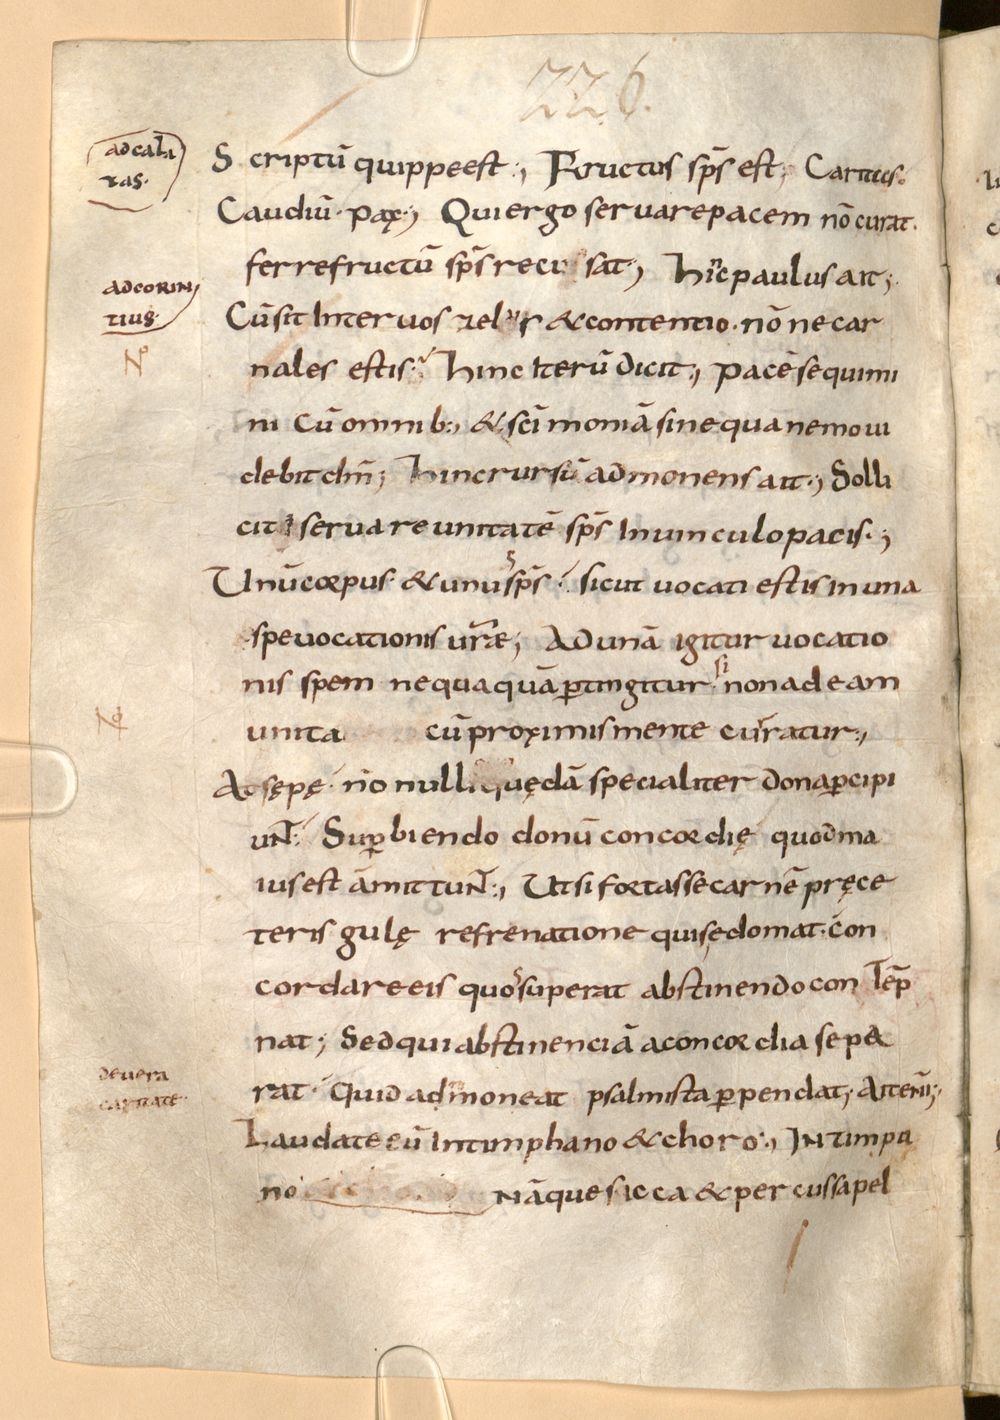 226.
ad cala
tas.
Scriptū quippe est ., Fructus sp̄s est; Caritas.
Gaudiū. Pax., Qui ergo servare pacem nō curat.
ferre fructū sp̄s recusat; Hinc paulus ait;
ad corin
tius.
Cū sit Inter vos zelus & contentio. nōne car
N°
nales estis. Hinc Iterū dicit., pacē sequimi
ni Cū omnib., & sc̄imoniā sine qua nemo ui
debit dn̄m; Hinc rursū admonens ait., Solli
citi servare unitatē sp̄s In uinculo pacis.,
Unū corpus & unus sp̄s. sicut uocati estis in una
spe uocationis ur̄ae; Ad unā igitur uocatio
nis spem nequaquā ptingitur si non ad eam
N°
unita cū proximis mente curratur.,
At sępę nonnulli quędā specialiter dona pcipi
uNt. Supbiendo donū concordię quod ma
ius est āmittuNt., Ut si fortasse carnē pręce
teris gulę refrenatione quis edomat. con
cordare eis quos superat abstinendo contēp
nat; Sed qui abstinenciā a concordia sepa
de uera
caritate.
rat. Quid admoneat psalmista ppendat; Ait eni;
Laudate eū In timphano & choro., IN timpa
no Nāque sicca & percussa pel